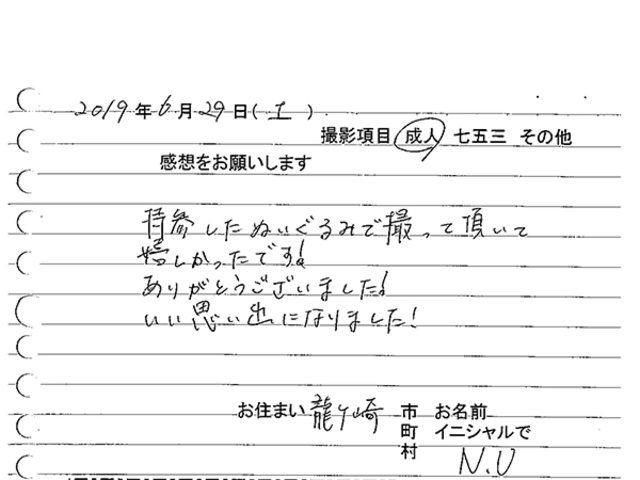 2019年6月29日(土)
撮影項目 成人 七五三 その他
感想をお願いします
持参したぬいぐるみで撮って頂いて
嬉しかったです!
ありがとうございました!
いい思い出になりました!
お住まい 龍ケ崎 市 お名前
町 イニシャルで
村 N.U